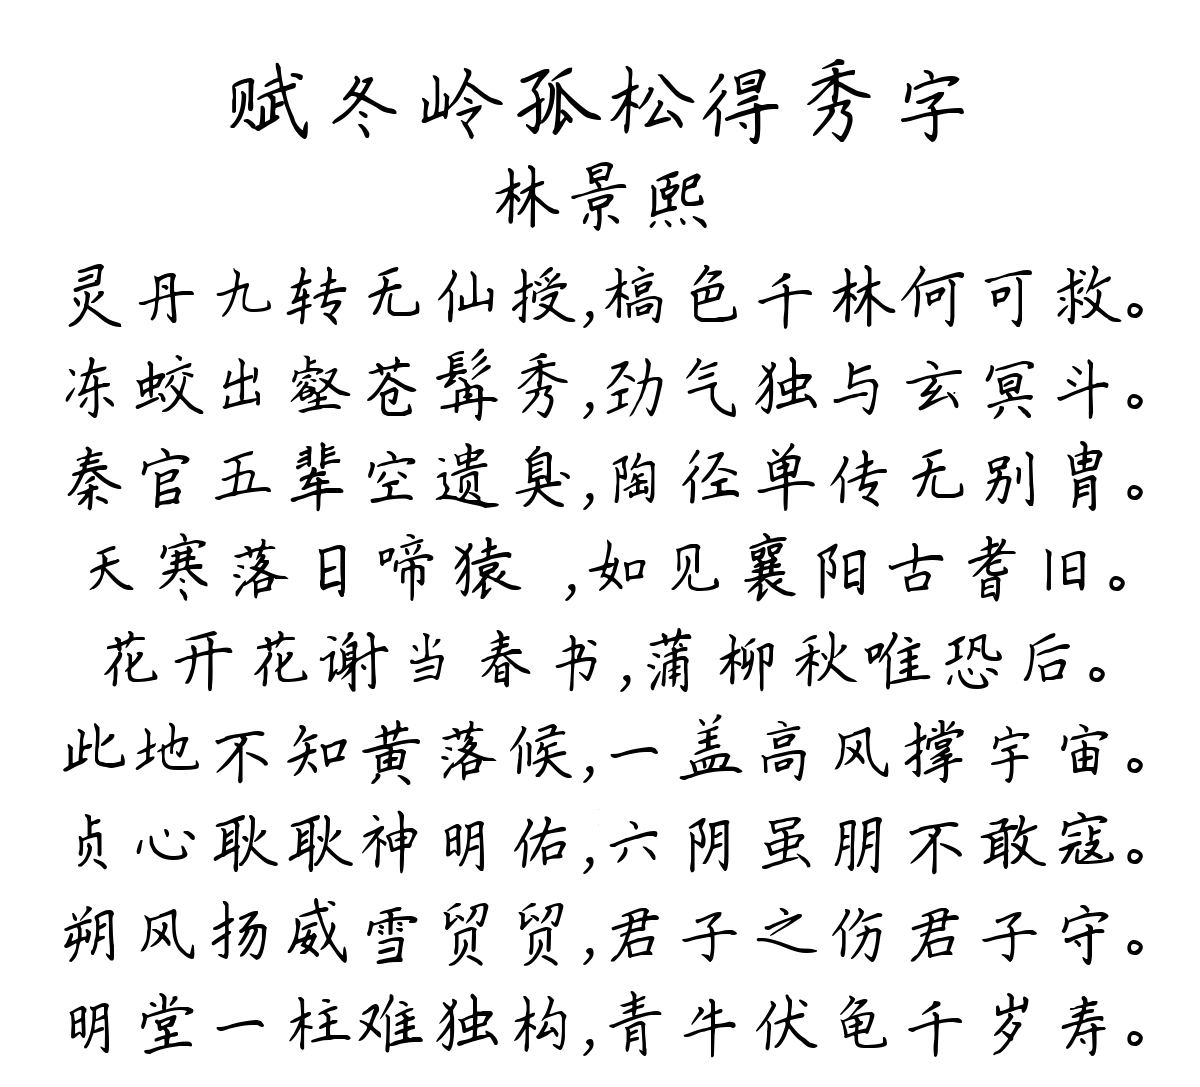 赋冬岭孤松得秀字
林景熙
灵丹九转无仙授,槁色千林何可救。
冻蛟出壑苍髯秀,劲气独与玄冥斗。
秦官五辈空遗臭,陶径单传无别胄。
天寒落日啼猿 ,如见襄阳古耆旧。
花开花谢当春书,蒲柳秋唯恐后。
此地不知黄落候,一盖高风撑宇宙。
贞心耿耿神明佑,六阴虽朋不敢寇。
朔风扬威雪贸贸,君子之伤君子守。
明堂一柱难独构,青牛伏龟千岁寿。